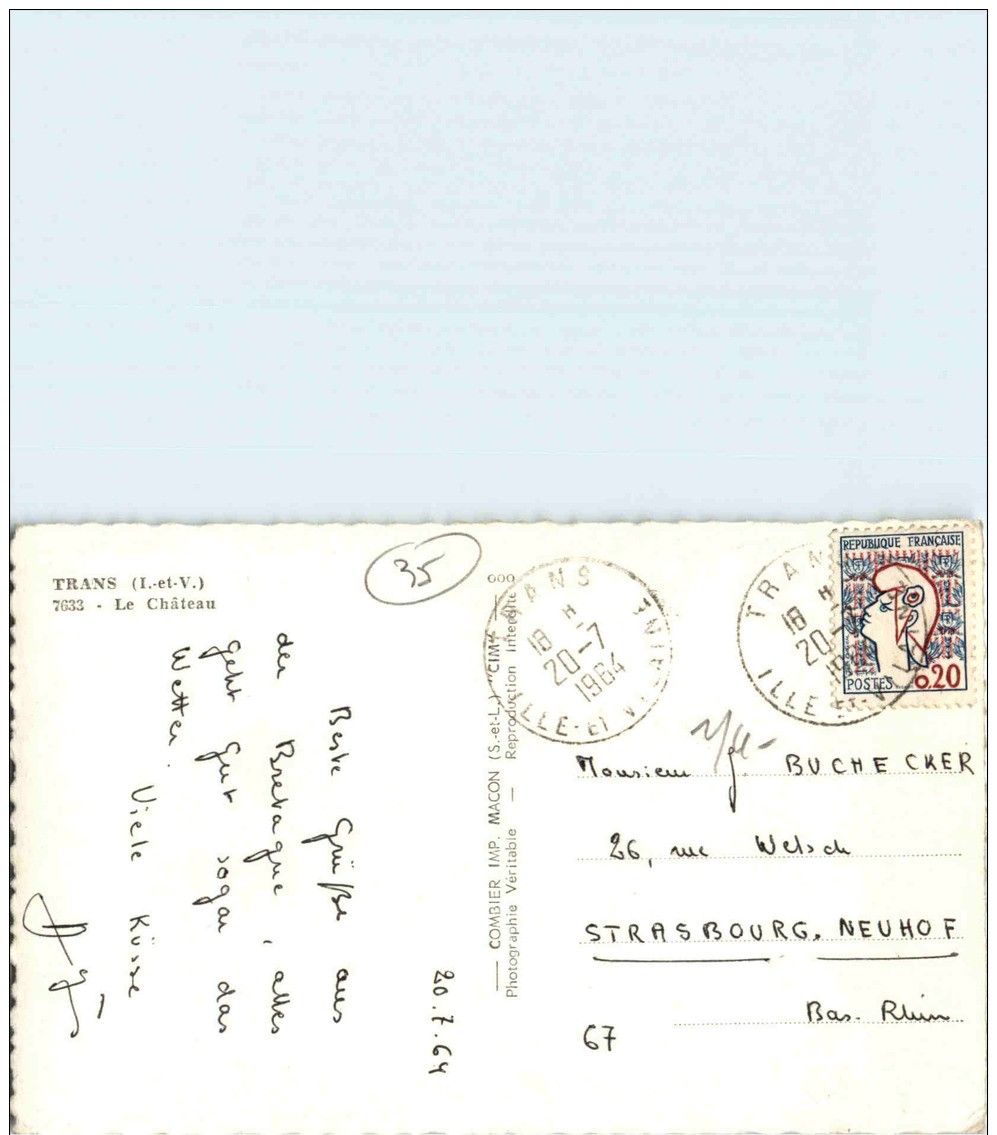 TRANS (I.-et-V.)
7633 - Le Château
35
20.7.64
Beste Grüße aus
der Bretagne, alles
geht gut sogar das
Wetter.
Viele Küsse
COMBIER IMP. MACON (S.-et-L.) "CIM"
Photographie Véritable — Reproduction Interdite
TRANS
18 H
20-7
1964
ILLE-ET-VILAINE
TRANS
18 H
20-7
ILLE-ET-VILAINE
REPUBLIQUE FRANÇAISE
POSTES 0,20
Monsieur J. BUCHECKER
26, rue Welsch
STRASBOURG. NEUHOF
Bas-Rhin
67